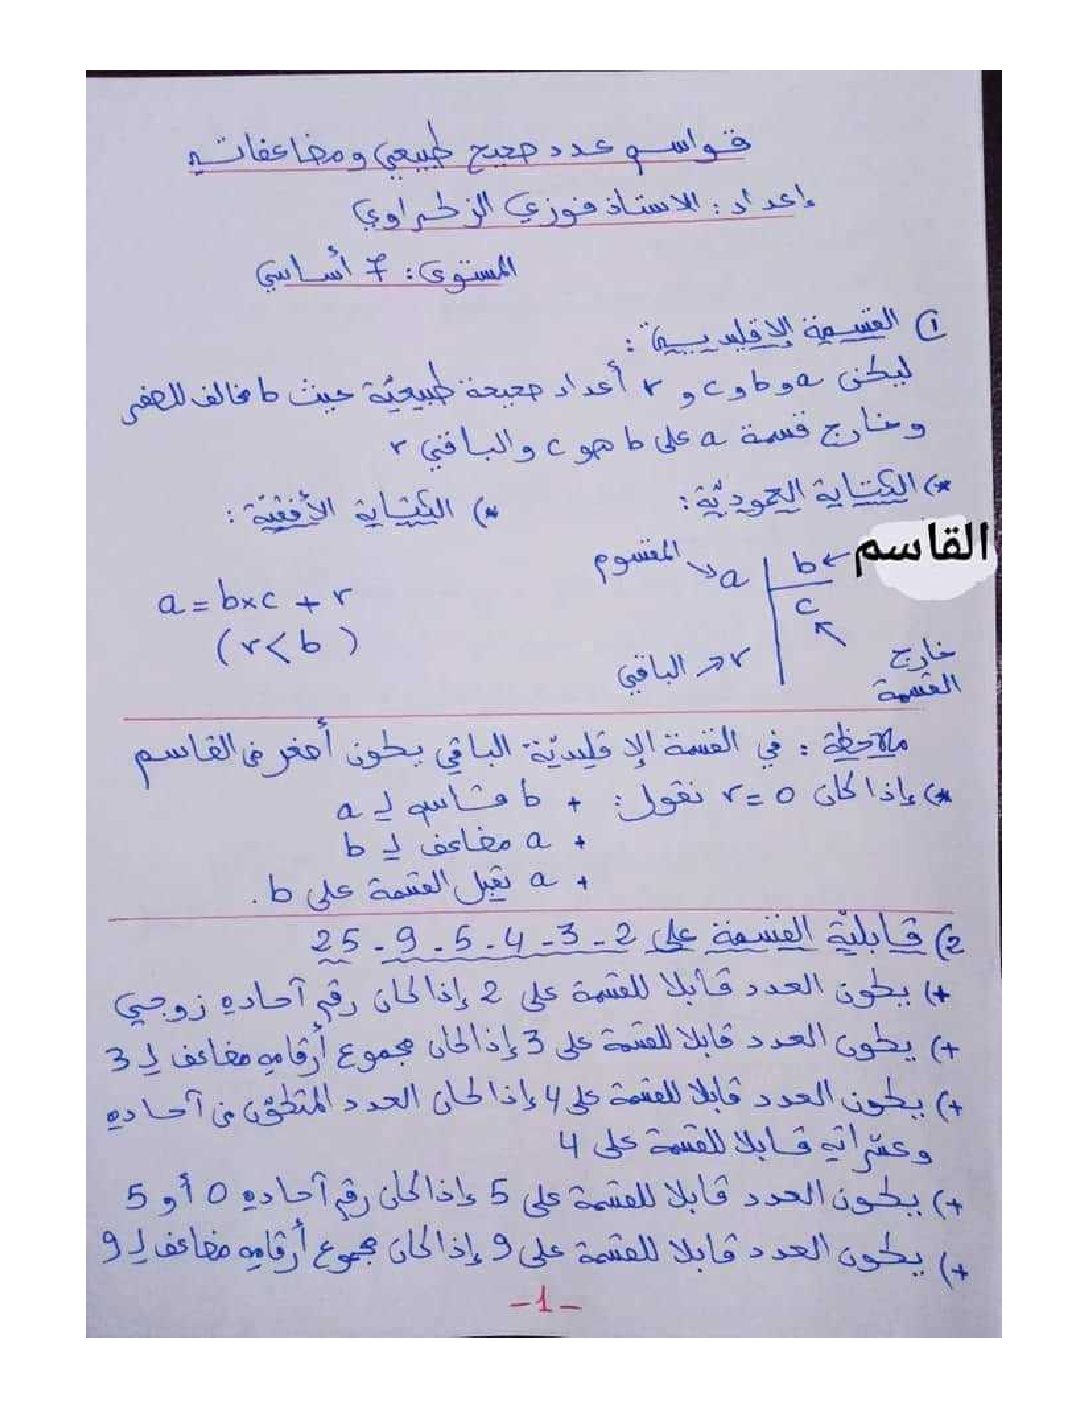 قواسم عدد صحيح طبيعي ومضاعفاته
إعداد: الاستاذ فوزي الزهراوي
المستوى: 7 أساسي
1) القسمة الإقليديية:
ليكن a و b و c و r أعداد صحيحة طبيعيّة حيث b مخالف للصفر
وخارج قسمة a على b هو c والباقي r
*) الكتابة العموديّة: *) الكتابة الأفقيّة:
المقسوم a b القاسم
a = b×c + r
(r < b)
c
r الباقي
خارج
القسمة
ملاحظة: في القسمة الإقليديّة الباقي يكون أصغر من القاسم
*) إذا كان r = 0 نقول: + b قاسم لـ a
+ a مضاعف لـ b
+ a تقبل القسمة على b.
2) قابليّة القسمة على 2 - 3 - 4 - 5 - 9 - 25
+) يكون العدد قابلا للقسمة على 2 إذا كان رقم آحاده زوجي
+) يكون العدد قابلا للقسمة على 3 إذا كان مجموع أرقامه مضاعف لـ 3
+) يكون العدد قابلا للقسمة على 4 إذا كان العدد المتكوّن من آحاده
وعشراته قابلا للقسمة على 4
+) يكون العدد قابلا للقسمة على 5 إذا كان رقم آحاده 0 أو 5
+) يكون العدد قابلا للقسمة على 9 إذا كان مجموع أرقامه مضاعف لـ 9
-1-